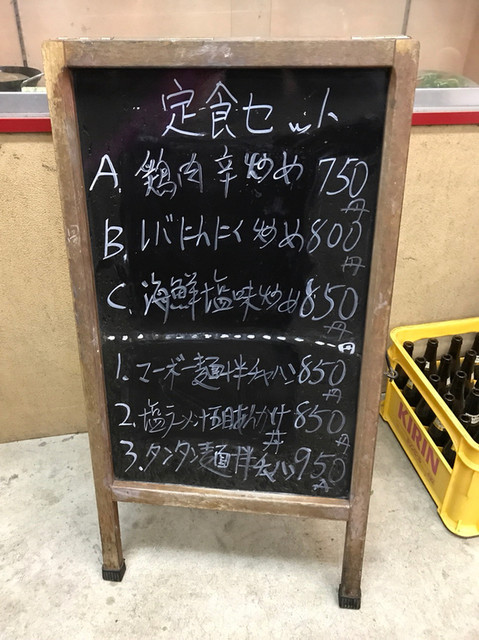 定食セット
A. 鶏肉辛炒め 750円
B. レバにんにく炒め 800円
C. 海鮮塩味炒め 850円
1. マーボー麺+半チャハン 850円
2. 塩ラーメン+五目あんかけ丼 850円
3. タンタン麺+半チャハン 950円
KIRIN